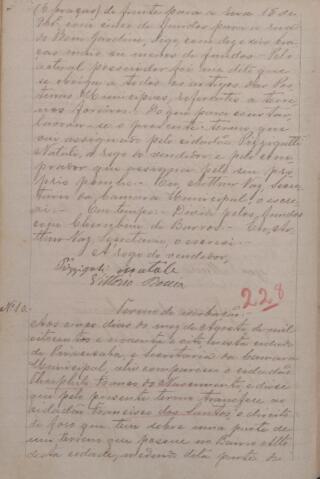 (6 praças) de frente para a rua 15 de
com cinco de fundos para a rua
do Bom Jardim, digo, com dez
mais ou menos de fundos. Pelo
actual possuidor foi me dito que
se obriga a todos os artigos das Pos-
turas Municipaes, referentes a terre-
nos foreiros. Do que para constar
lavrou-se o presente termo, que
vai assignado pelo cidadão Pezzigatti
Natale, a rogo do vendedor e pelo com-
prador que assigna pelo seu pro-
prio punho. Eu, Arthur Vaz, Secre-
tario da Camara Municipal, o escre-
vi. Em tempo: Divide pelos fundos
com de Barros. Eu, Ar-
thur Vaz, Secretario, o escrevi.
A rogo do vendedor,
Pezzigatti Natale
Vittorio
228
Nº 10.
Termo de
Aos cinco dias do mez de Agosto de mil
oitocentos e noventa e oito nesta cidade
de Piracicaba, e Secretaria da Camara
Municipal, ahi compareceu o cidadão
Theophilo Franco do Nascimento, e disse
que pelo presente termo transfere ao
cidadão Francisco dos Santos, o direito
de foro que tem sobre uma parte de
um terreno que possue no Bairro Alto
desta cidade, medindo dita parte de